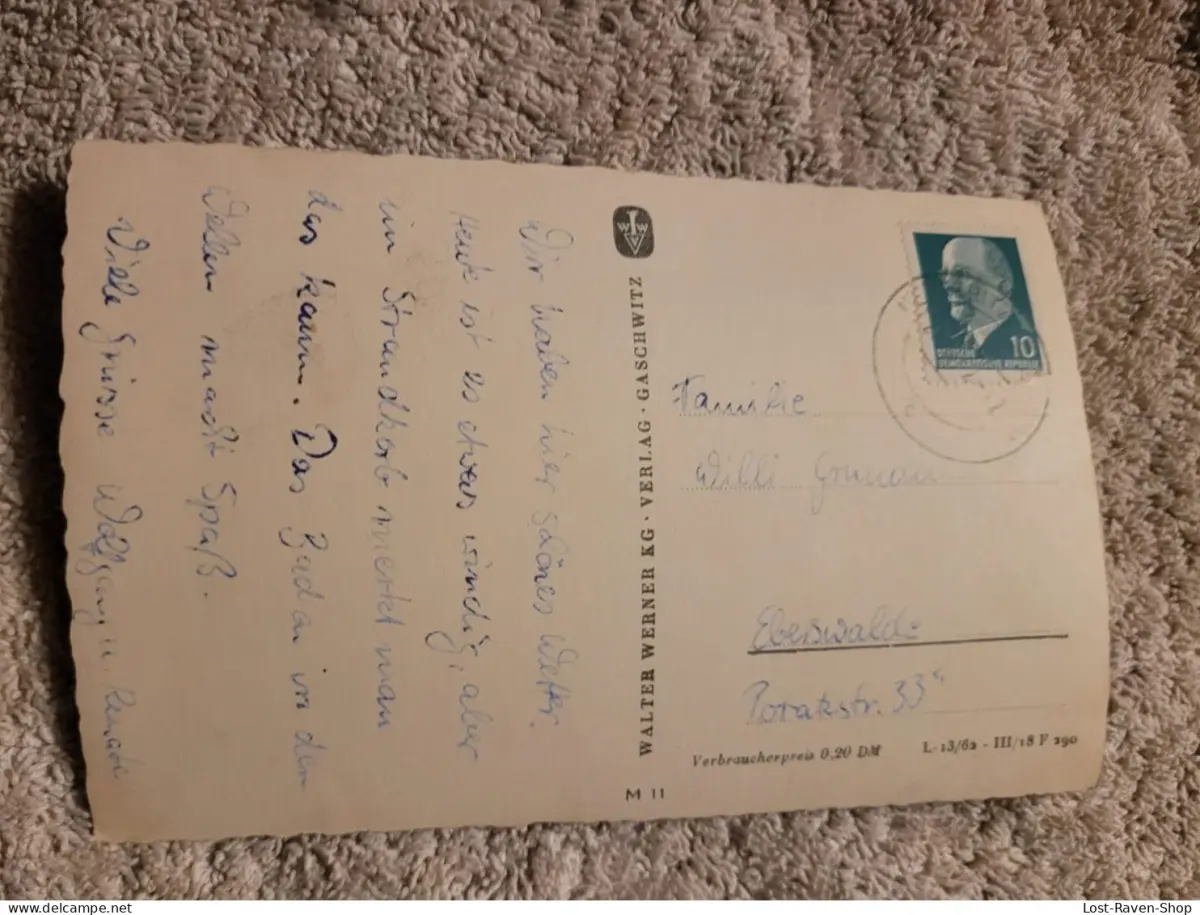 Wir haben hier schönes Wetter.
Heute ist es etwas windig, aber
im Strandkorb merkt man
das kaum. Das Baden in den
Wellen macht Spaß.
Viele Grüsse Wolfgang u. Renate
WALTER WERNER KG · VERLAG · GASCHWITZ
M 11
DEUTSCHE
DEMOKRATISCHE REPUBLIK
10
Familie
Willi Grunau
Eberswalde
Poratzstr. 33
Verbraucherpreis 0,20 DM
L-13/62 - III/18 F 290
Lost-Raven-Shop